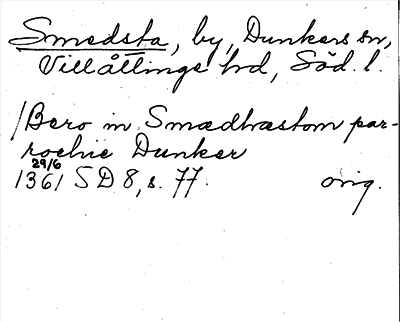 Smedsta, by, Dunkers sn,
Villåttinge hd, Söd. l.
/Bero in Smædhæstom par-
rochie Dunker
29/6
1361 SD 8, s. 77. orig.